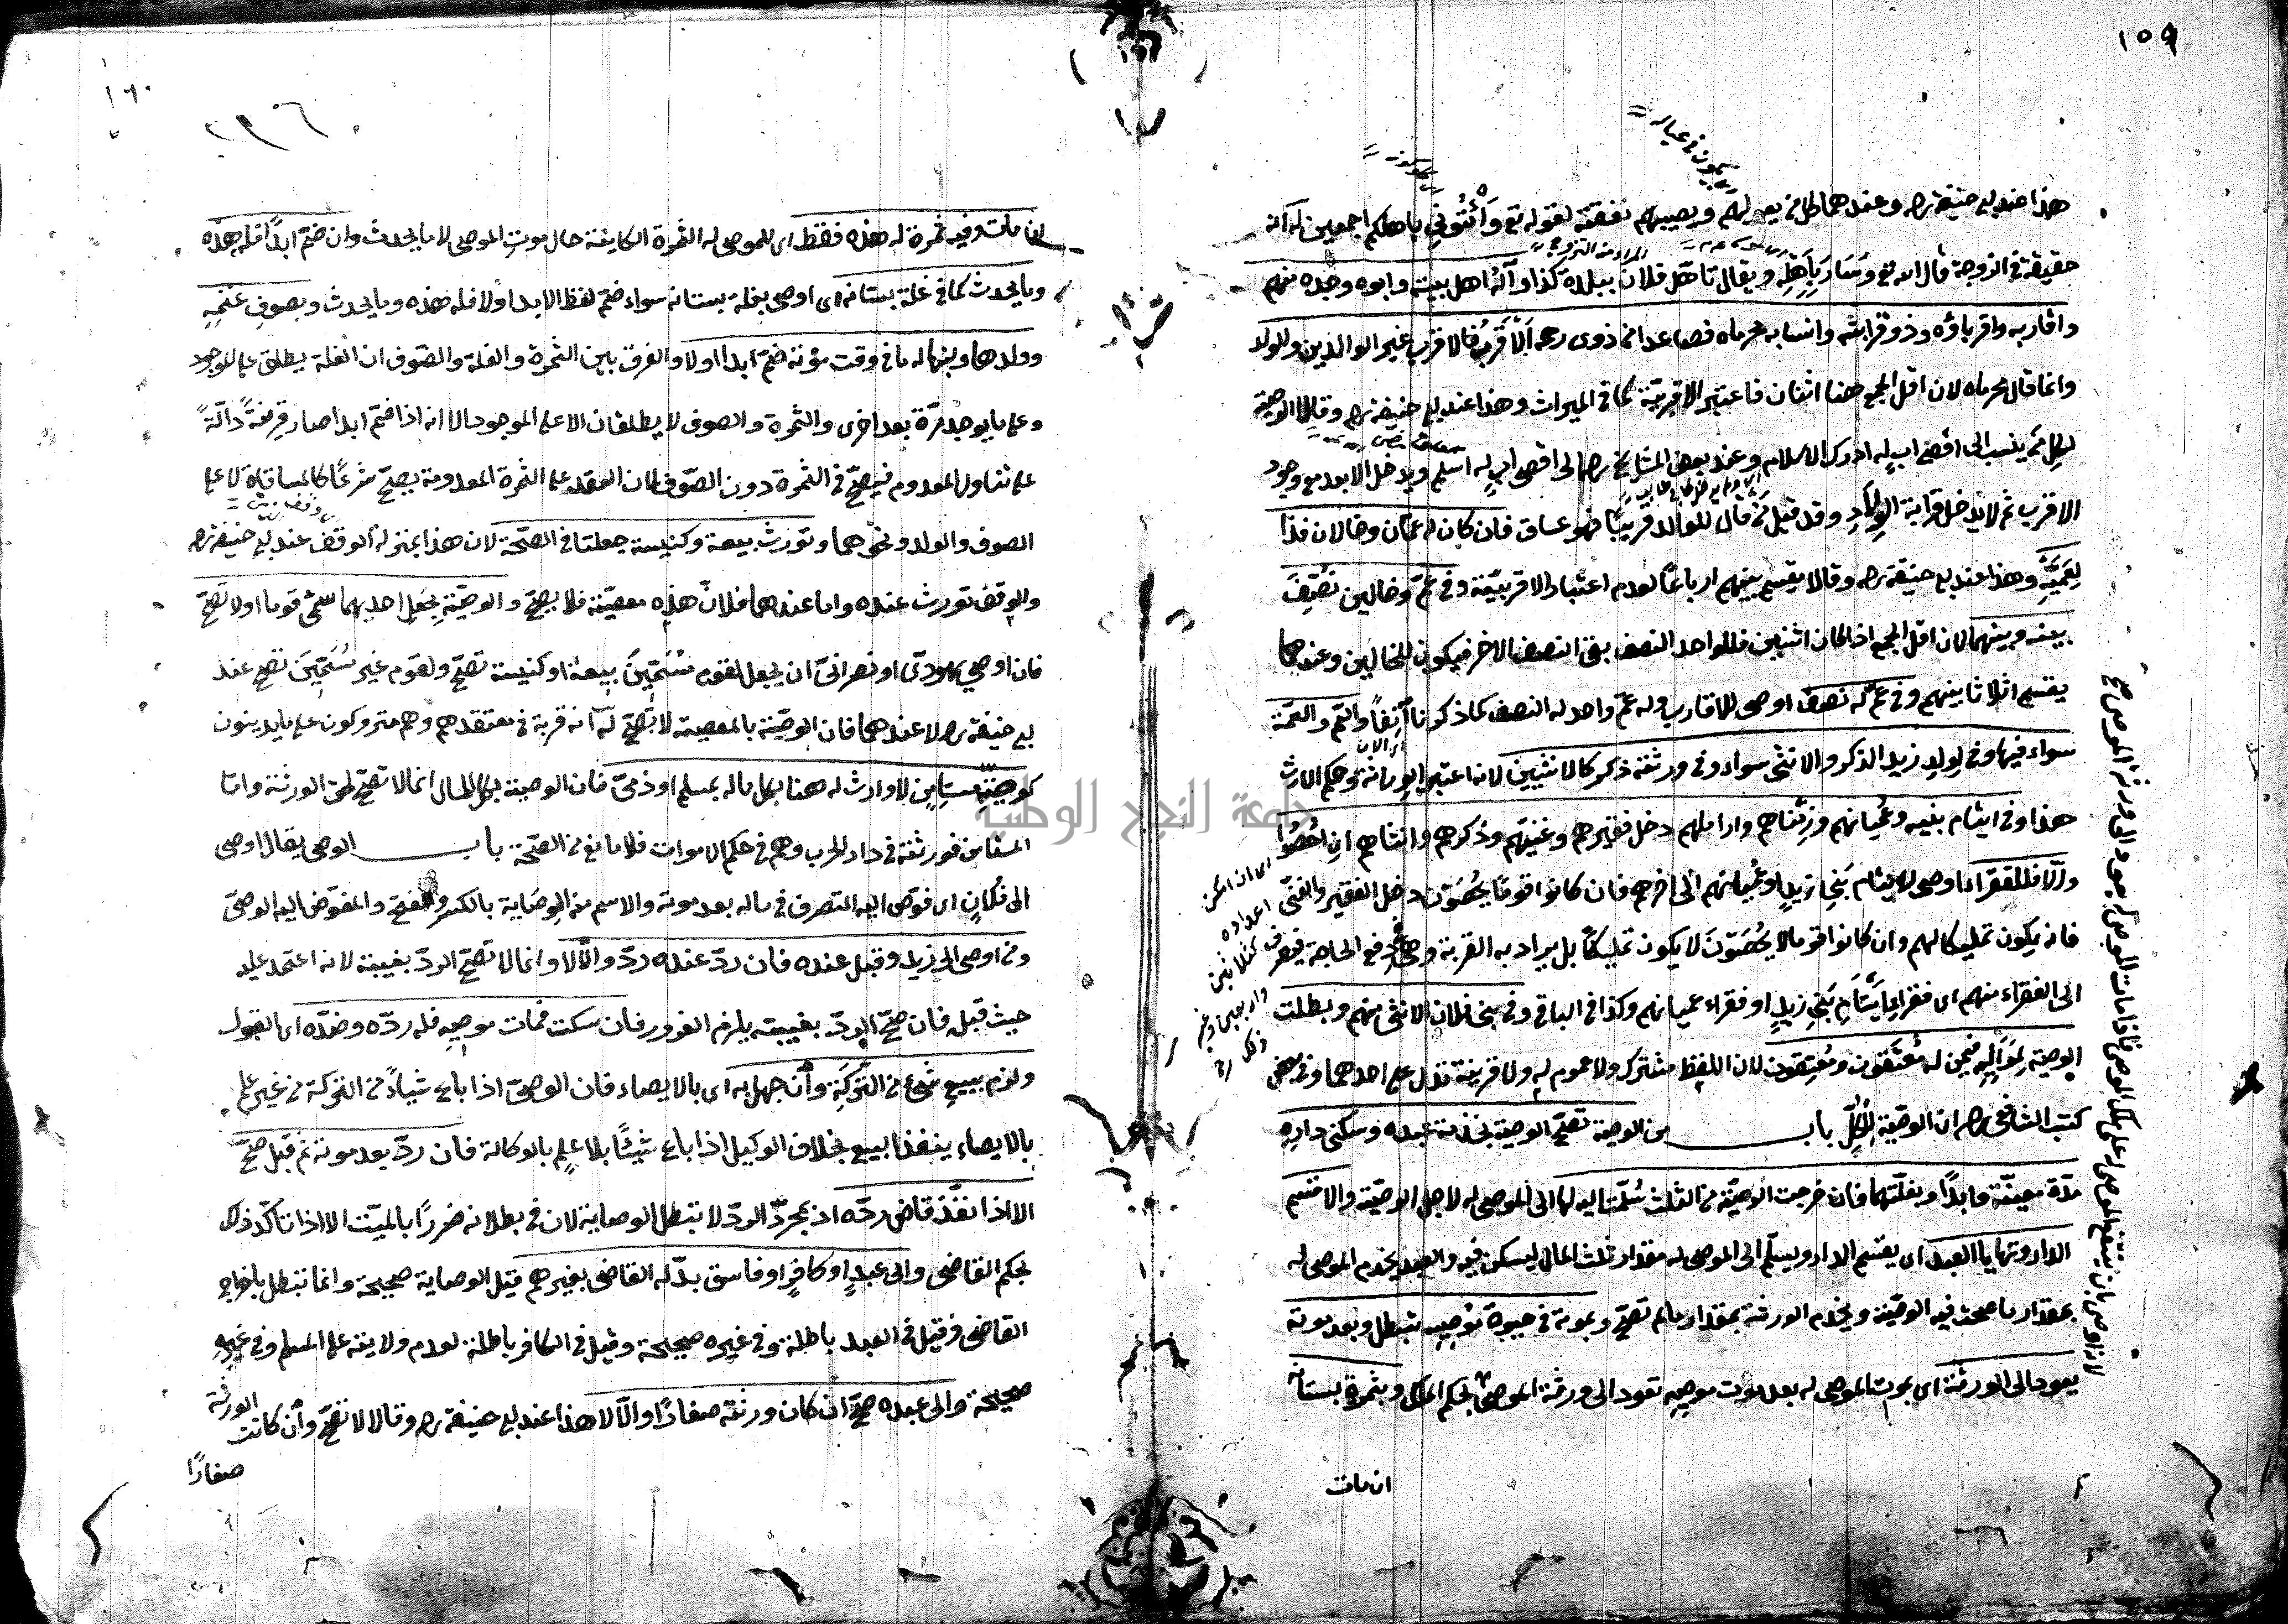 ١٥٩
يكون في عياله
هذا عند ابي حنيفة رحـ وعندهما كل من يعولهم ويصيبهم نفقته لقوله تع وَأْتُونِي باهلكم اجمعين له انه
المراد منه التزوج
حقيقة في الزوجة قال الله تع وَسَارَ بِأَهْلِهِ ويقال تاهّل فلان ببلدة كذا وآلُه اهل بيته وابوه وجدّه منهم
واقاربه واقرباؤه وذو قرابته وانسابه محرماه فصاعدا من ذوى رحمه اَلْاَقْرَبُ فالاقرب غير الوالدين والولد
وانما قال محرماه لان اقل الجمع هنا اثنان فاعتبر الاقربيّة كما في الميراث وهذا عند ابي حنيفة رحـ وقالا الوصية
لكل من ينسب الى اقصى اب له ادرك الاسلام وعند بعض المشايخ رحـ الى اقصى اب له اسلم ويدخل الابعد مع وجود
الاقرب ثم لا يدخل قرابة الوِلادِ وقد قيل من قال للوالد قريبًا فهو عاق فان كان له عمّان وخالان فذا
لِعَمَّيْهِ وهذا عند ابي حنيفة رحـ وقالا يقسم بينهم ارباعًا لعدم اعتبار الاقربيّة وفي عمّ وخالين نُصِّفَ
بينه وبينهما لان اقل الجمع اذا كان اثنين فللواحد النصف بقى النصف الاخر فيكون للخالين وعندهما
يقسم اثلاثا بينهم وفي عمّ له نصف اوصى للاقارب وله عمّ واحد له النصف كما ذكرنا آنِفًا والعم والعمّة
سواء فيها وفي لِولد زيد الذكر والانثى سواء وفي ورثته ذكر كالانثيين لانه اعتبر الوراثة وحكم الارث
هذا وفي ايتام بنيه وعُميانهم وزَمْناهم واراملهم دخل فقيرهم وغنيّهم وذكرهم وانثاهم ان اُحْصُوا
والّا فللفقراء اوصى لايتام بَنِي زيدٍ او عُميانهم الى اخرهم فان كانوا قومًا يُحْصَوْنَ دخل الفقير والغنى
فانه يكون تمليكا لهم وان كانوا قومًا لا يُحْصَوْنَ لا يكون تمليكًا بل يراد به القربة وهى دفع الحاجة فيصرف
الى الفقراء منهم اى فقراءِ اَيْتَامِ بَنِي زيدٍ او فقراء عميانهم وكذا في الباقي وفي بني فلان الانثى منهم وبطلت
الوصية لِمَوَالِيهِ فيمن له مُعْتَقُون ومُعْتِقُون لان اللفظ مشترك ولا عموم له ولا قرينة تدل على احدهما وفي بعض
كتب الشافعى رحـ ان الوصيّة لِلْكُلِّ باب من الوصية تصحّ الوصية بخدمة عبده وسكنى دارِهِ
مدّة معيّنة وابدًا وبغلّتهما فان خرجت الوصيّة من الثلث سُلّمت اليه لها الى الموصى له لاجل الوصيّة والا قسم
الدار وتهايا العبد اى يقسم الدار ويسلّم الى الموصى له مقدار ثلث المال ليسكن فيه والعبد يخدم الموصى له
بمقدار ما صحت فيه الوصيّة ويخدم الورثة بمقدار ما لم تصحّ وبموته في حيوة مُوصِيه تبطل وبعد موته
يعود الى الورثة اى بموت الموصى له بعد موت موصيه تعود الى ورثة الموصى بحكم الملك وبثمرة بستانه
ان مات
١٦٠
ان مات وفيه ثمرة له هذه فقط اى للموصى له الثمرة الكاينة حال موت الموصى لا ما يحدث وان ضمّ ابدًا فله هذه
وما يحدث كما في غلّة بستانه اى اوصى بغلة بستانه سواء ضمّ لفظ الابد او لا فله هذه وما يحدث وبصوفِ غنمِهِ
وولدها ولبنها له ما في وقت موته ضمّ ابدا او لا والفرق بين الثمرة والغلة والصّوف ان الغلة يطلق على الموجود
وعلى ما يوجد مرّة بعد اخرى والثمرة والصوف لا يطلقان الا على الموجود الا انه اذا ضمّ ابدا صار قرينةً دالّةً
على تناول المعدوم فيصحّ في الثمرة دون الصّوف لان العقد على الثمرة المعدومة يصحّ شرعًا كالمساقاة لا على
الصوف والولد ونحوهما وتورث بيعة وكنيسة جعلتا في الصّحة لان هذا بمنزلة الوقف عند ابي حنيفة رحـ
والوقف تورث عنده واما عندهما فلانّ هذه معصيّة فلا يصحّ والوصيّة بجعل احديهما سمّى قوما او لا تصحّ
فان اوصى يهودىّ او نصرانىّ ان يجعل لقوم مُسَمَّيْنَ بيعة او كنيسة تصحّ ولقوم غير مُسَمَّيْنَ تصح عند
ابي حنيفة رحـ لا عندهما فان الوصيّة بالمعصية لا تصحّ له انه قربة في معتقدهم وهم متروكون على ما يدينون
كوصيّة مستأمِنٍ لا وارث له هنا بكل ماله بمسلم او ذمىّ فان الوصية بكل المال انما لا تصحّ لحق الورثة واما
المستامن فورثته في دار الحرب وهم في حكم الاموات فلا مانع من الصّحة باب الوصى يقال اوصى
الى فُلانٍ اى فوّض اليه التصرف في ماله بعد موته والاسم منه الوِصَاية بالكسر والفتح والمفوّض اليه الوصىّ
ومن اوصى الى زيد وقبل عنده فان ردّ عنده ردّ والّا لا وانما لا تصحّ الردّ بغيبته لانه اعتمد عليه
حيث قبل فان صحّ الردّ بغيبته يلزم الغرور فان سكت فمات موصيه فله ردّه وضدّه اى القبول
ولزم ببيعِ شىءٍ من التَّرِكَةِ واِن جهل به اى بالايصاء فان الوصىّ اذا باع شيأً من التركة من غير علم
بالايصاء ينفذ البيع بخلاف الوكيل اذا باع شيئًا بلا علمٍ بالوكالة فان ردّ بعد موته ثم قبل صحّ
الا اذا نفّذ قاضٍ ردّه اذ بمجردّ الردّ لا تبطل الوصاية لان في بطلانه ضررًا بالميّت الا اذا تاكّد ذلك
بحكم القاضى والى عبدٍ او كافرٍ او فاسق بدّله القاضى بغيرهم قيل الوصاية صحيحة وانما تبطل باخراج
القاضى وقيل في العبد باطلة وفي غيره صحيحة وقيل في الكافر باطلة لعدم ولايته على المسلم وفي غيرِهِ
صحيحة والى عبده صحّ ان كان ورثته صغارًا والّا لا هذا عند ابي حنيفة رحـ وقالا لا تصحّ واِن كانت الورثة
صغارًا
جامعة النجاح الوطنية